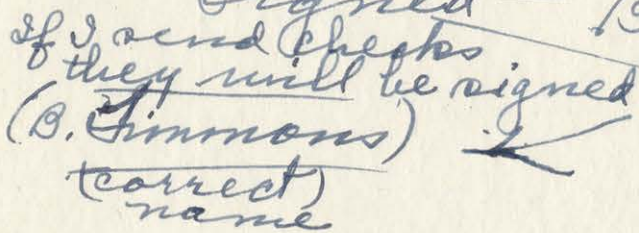 signed B
If I send checks
they will be signed
(B. Timmons)
(correct)
name